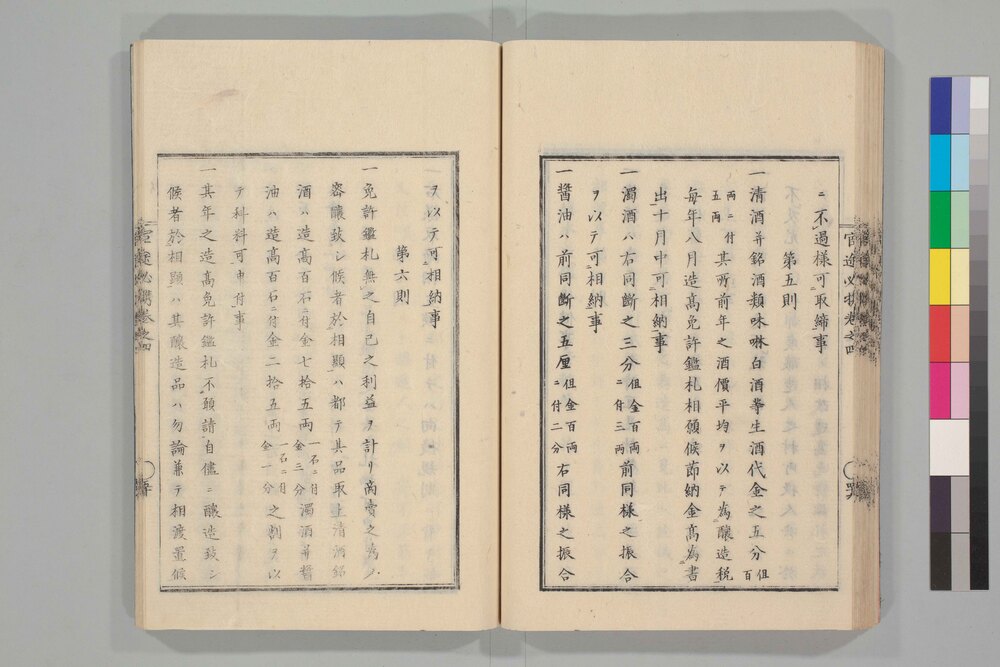 ニ不過樣可取締事
第五則
一清酒并銘酒類味啉白酒等生酒代金之五分但百
兩ニ付五兩其所前年之酒價平均ヲ以テ為釀造税
每年八月造高免許鑑札相願候節納金高為書
出十月中可相納事
一濁酒ハ右同斷之三分但金百兩ニ付三兩前同樣之振合
ヲ以テ可相納事
一醬油ハ前同斷之五厘但金百兩ニ付二分右同樣之振合
ヲ以テ可相納事
第六則
一免許鑑札無之自己之利益ヲ計リ商賣之為メ
密釀致シ候者於相顯ハ都テ其品取上清酒銘
酒ハ造高百石ニ付金七拾五兩一石ニ付金三分濁酒并醬
油ハ造高百石ニ付金二拾五兩一石ニ付金一分之割ヲ以
テ科料可申付事
一其年之造高免許鑑札不願請自儘ニ釀造致シ
候者於相顯ハ其釀造品ハ勿論兼テ相渡置候